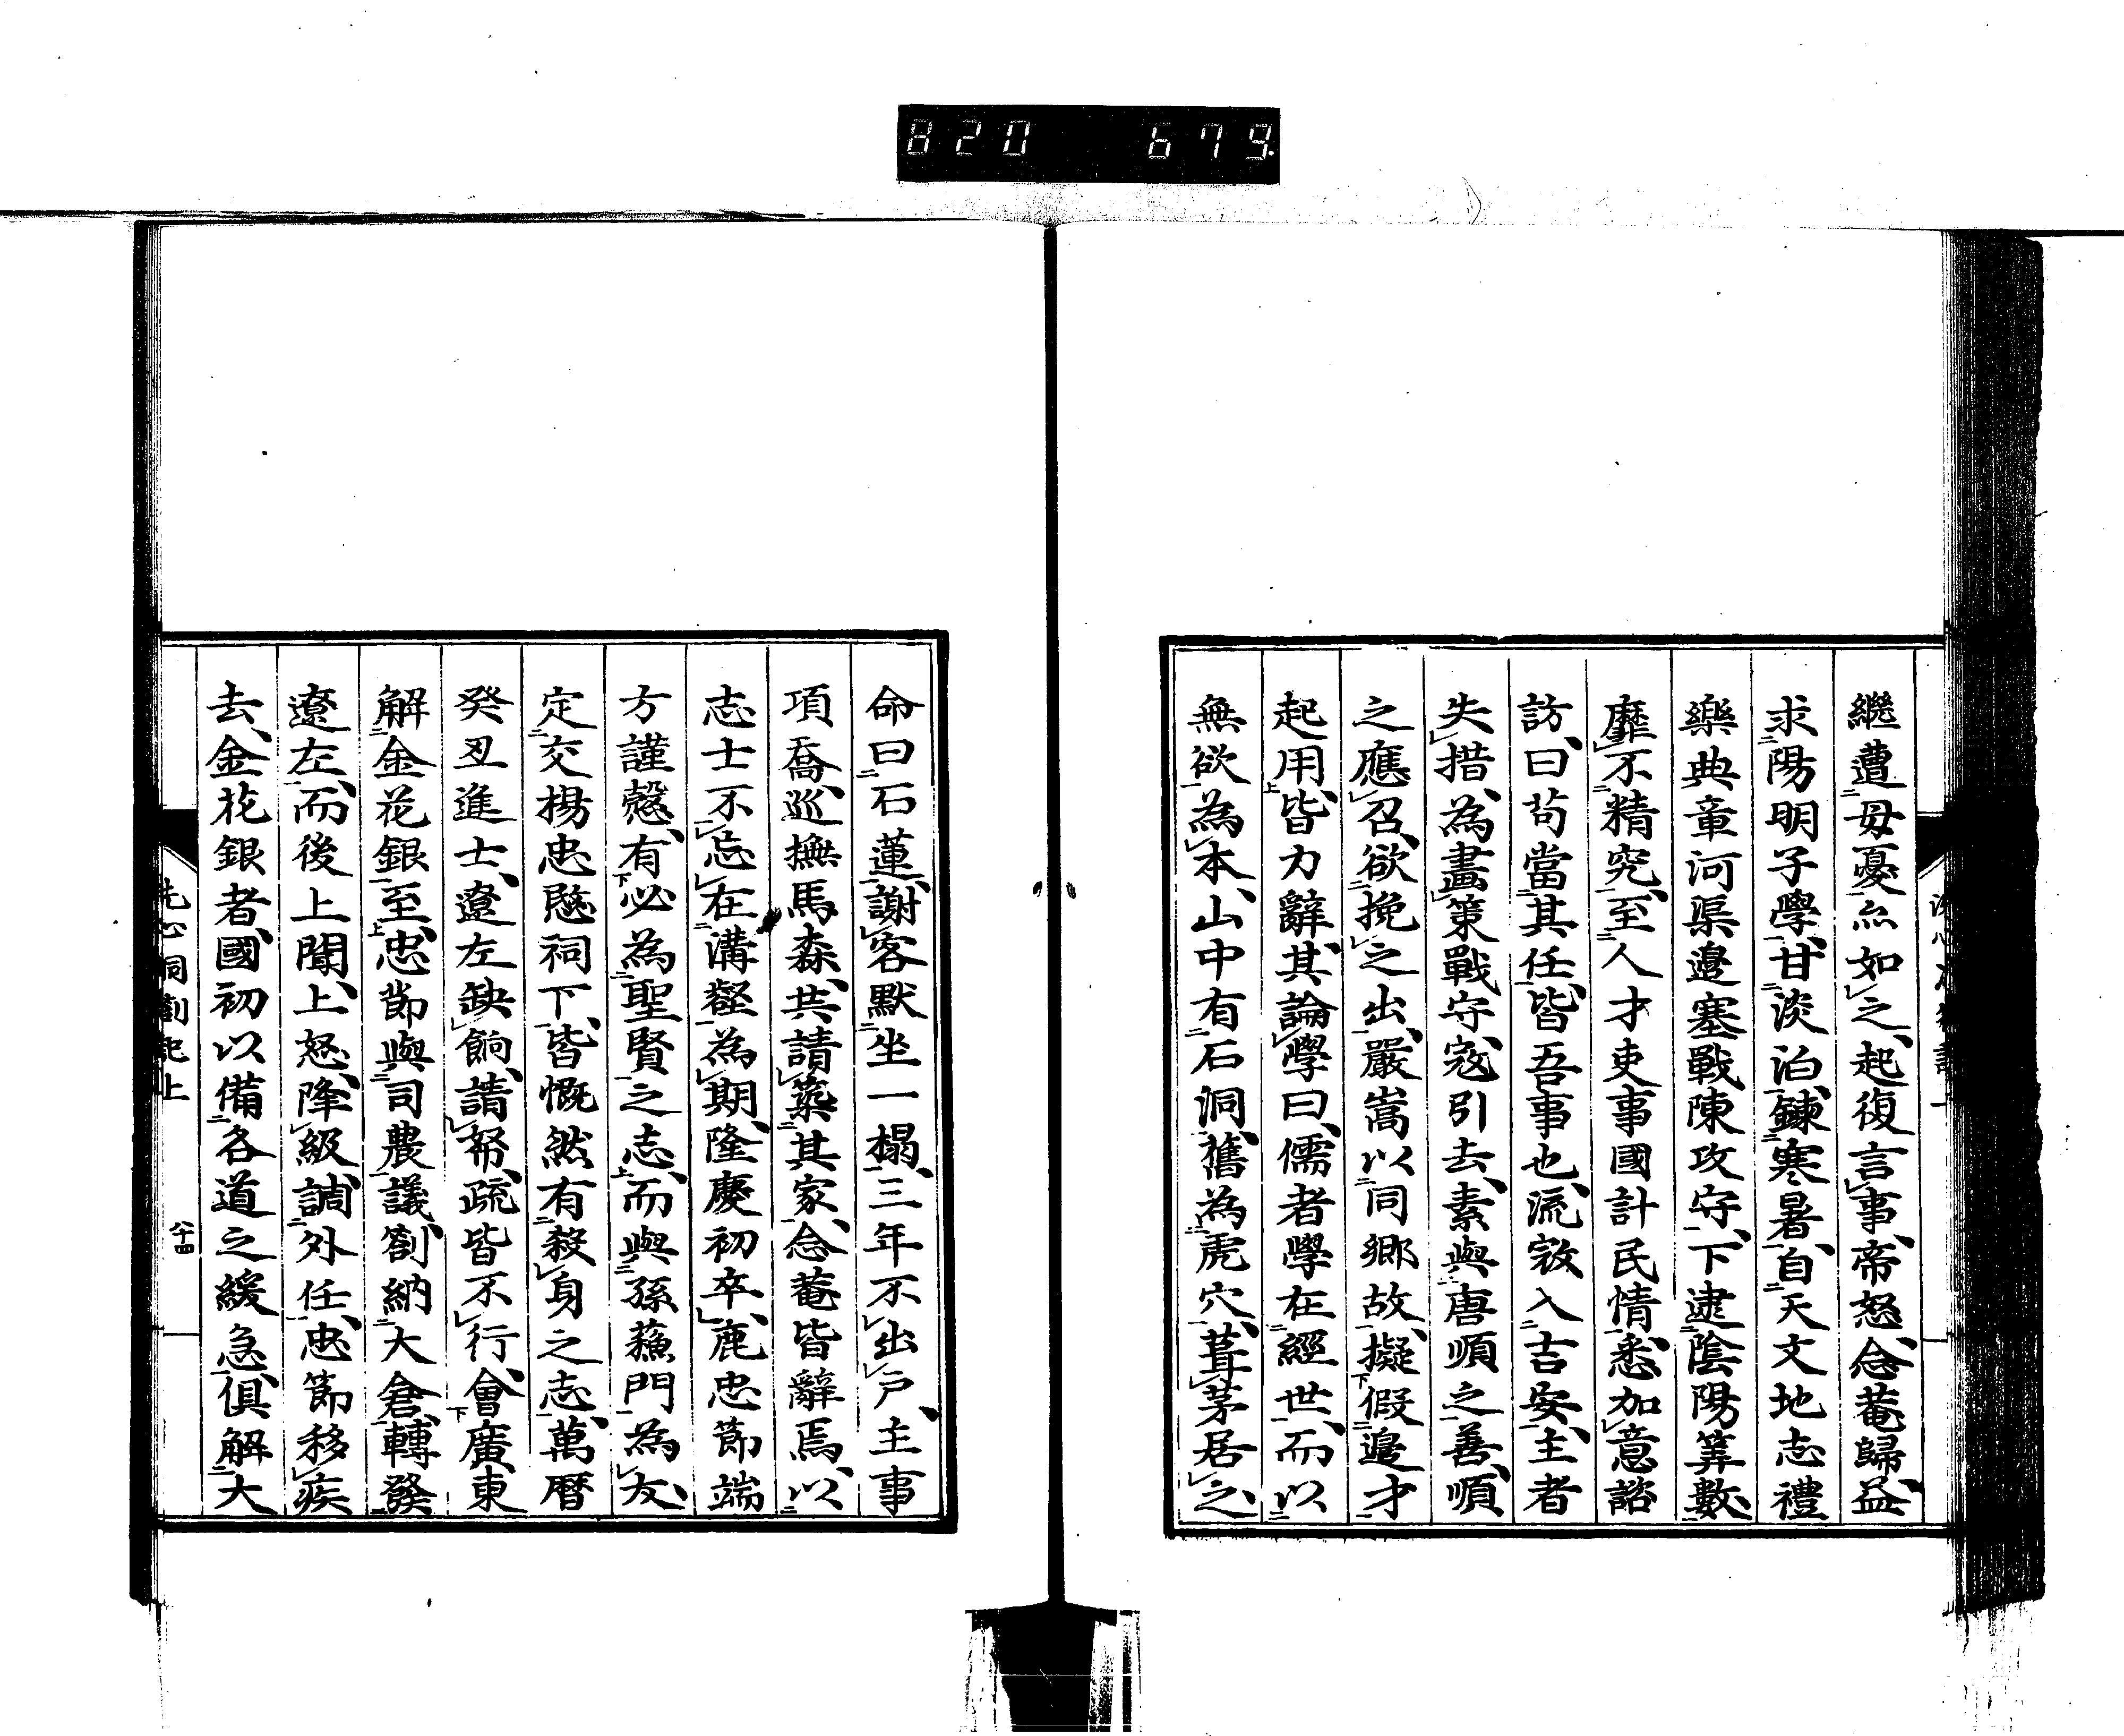 820 679
繼遭母憂亦如之起復言事帝怒念菴歸益
求陽明子學甘淡泊錬寒暑自天文地志禮
樂典章河渠邉塞戰陳攻守下逮陰陽筭數
靡不精究至人才吏事國計民情悉加意諮
訪曰苟當其任皆吾事也流寇入吉安主者
失措為畫策戰守寇引去素與唐順之善順
之應召欲挽之出嚴嵩以同郷故擬假邉才
起用皆力辭其論學曰儒者學在經世而以
無欲為本山中有石洞舊為虎穴葺茅居之
命曰石蓮謝客默坐一榻三年不出戸主事
項喬巡撫馬森共請築其家念菴皆辭焉以
志士不忘在溝壑為期隆慶初卒鹿忠節端
方謹慤有必為聖賢之志而與孫蘓門為友
定交楊忠愍祠下皆慨然有殺身之志萬曆
癸丑進士遼左缺餉請帑疏皆不行會廣東
解金花銀至忠節與司農議劄納大倉轉發
遼左而後上聞上怒降級調外任忠節移疾
去金花銀者國初以備各道之緩急俱解大
洗心洞劄記上
八十四